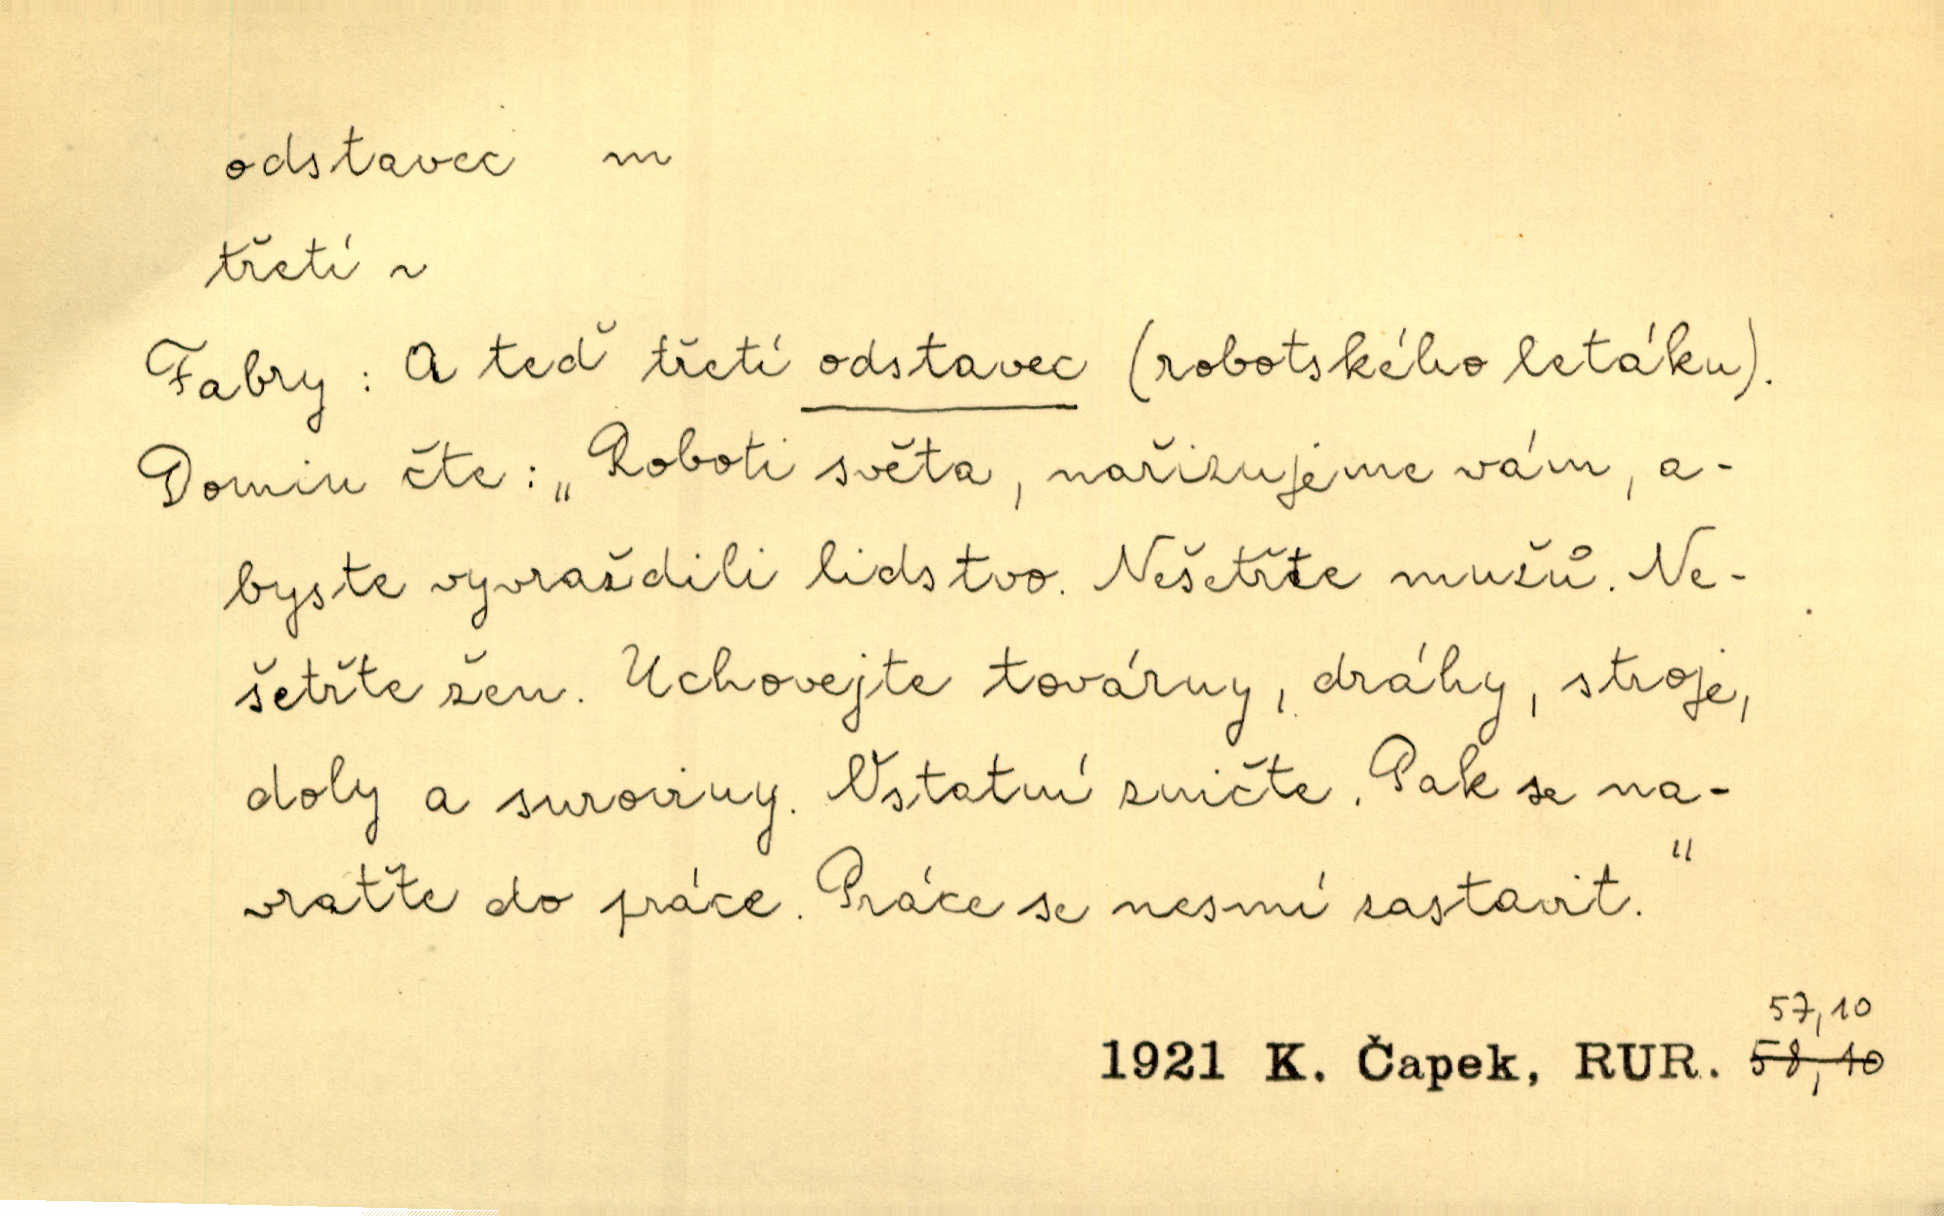 odstavec m
třetí ~
Fabry : A teď třetí odstavec (robotského letáku).
Domin čte : „Roboti světa, nařizujeme vám, a-
byste vyvraždili lidstvo. Nešetřte mužů. Ne-
šetřte žen. Uchovejte továrny, dráhy, stroje,
doly a suroviny. Ostatní zničte. Pak se na-
vraťte do práce. Práce se nesmí zastavit."
57,10
1921 K. Čapek, RUR. 58,10